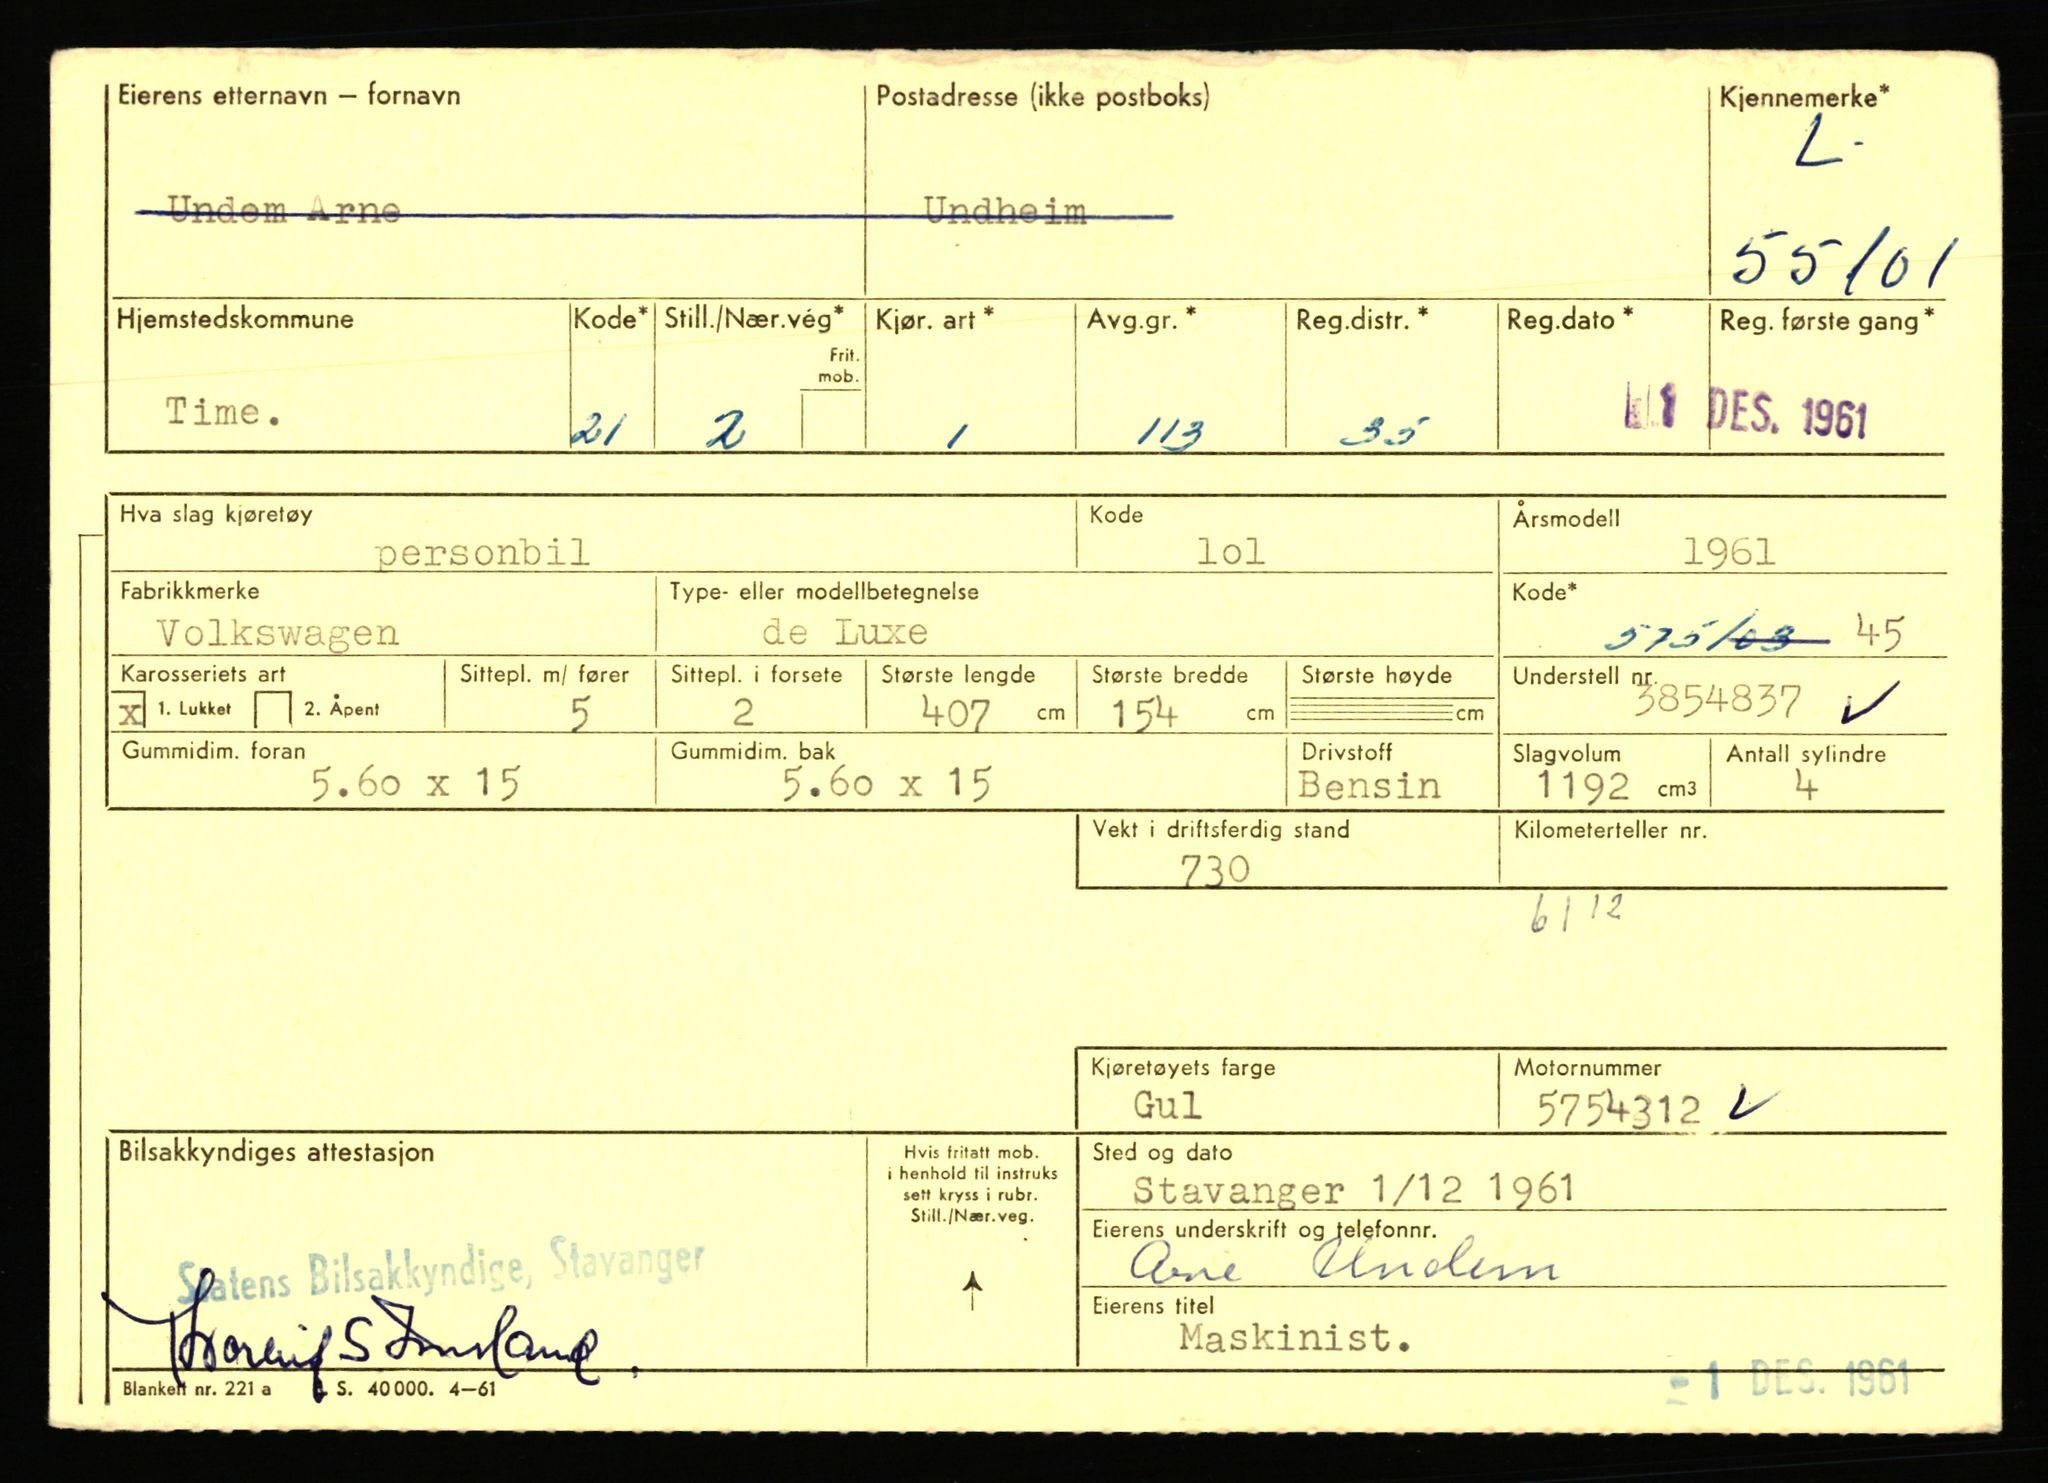 Eierens etternavn – fornavn Postadresse (ikke postboks) Kjennemerke*
L-
Undem Arne Undheim
55101
Hjemstedskommune Kode* Still./Nær.vég* Kjør. art * Avg.gr. * Reg.distr. * Reg.dato * Reg. første gang *
Frit.
mob.
Time. 21 2 1 113 35 1 DES. 1961
Hva slag kjøretøy Kode Årsmodell
personbil lol 1961
Fabrikkmerke Type- eller modellbetegnelse Kode*
Volkswagen de Luxe 575/03 45
Karosseriets art Sittepl. m/ fører Sittepl. i forsete Største lengde Største bredde Største høyde Understell nr.
x 1. Lukket 2. Åpent 5 2 407 cm 154 cm cm 3854837
Gummidim. foran Gummidim. bak Drivstoff Slagvolum Antall sylindre
5.60 x 15 5.60 x 15 Bensin 1192 cm3 4
Vekt i driftsferdig stand Kilometerteller nr.
730
6112
Kjøretøyets farge Motornummer
Gul 5754312
Bilsakkyndiges attestasjon
Hvis fritatt mob.
i henhold til instruks
sett kryss i rubr.
Still./Nær.veg.
Sted og dato
Stavanger 1/12 1961
Eierens underskrift og telefonnr.
Arne Undem
Statens Bilsakkyndige, Stavanger
Eierens titel
Maskinist.
Blankett nr. 221 a S. 40 000. 4–61
-1 DES. 1961